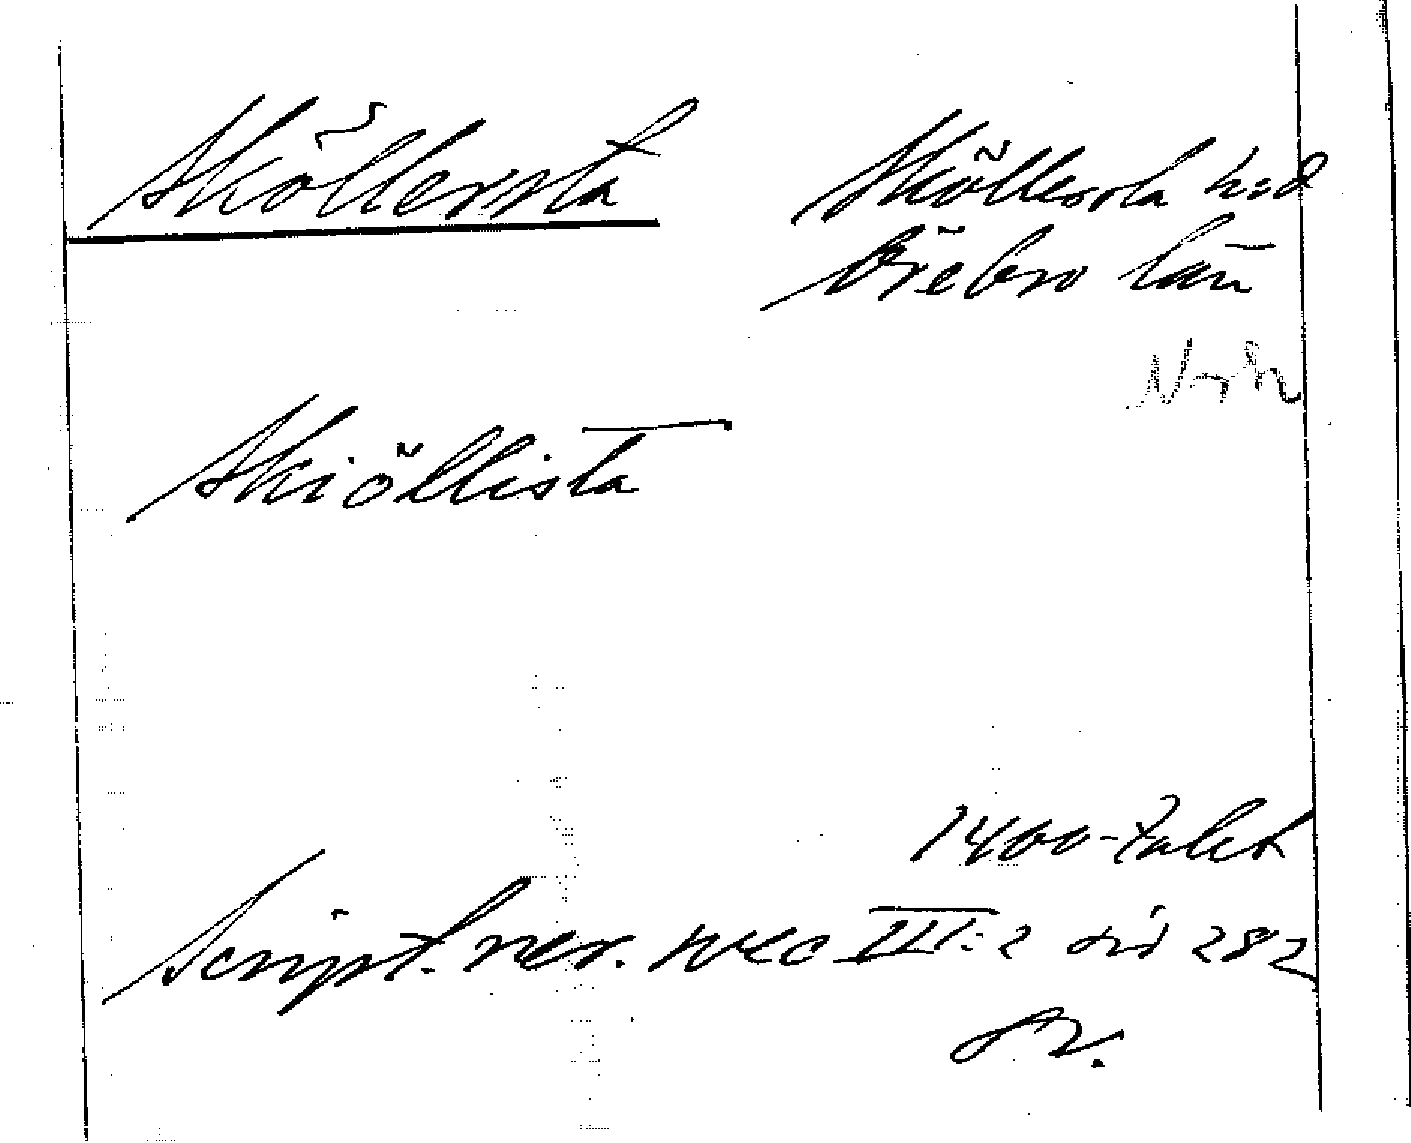 Sköllersta
Sköllersta hd
Örebro län
Skiöllista
1400-talet
Script. rer. svec III:2 sid 282